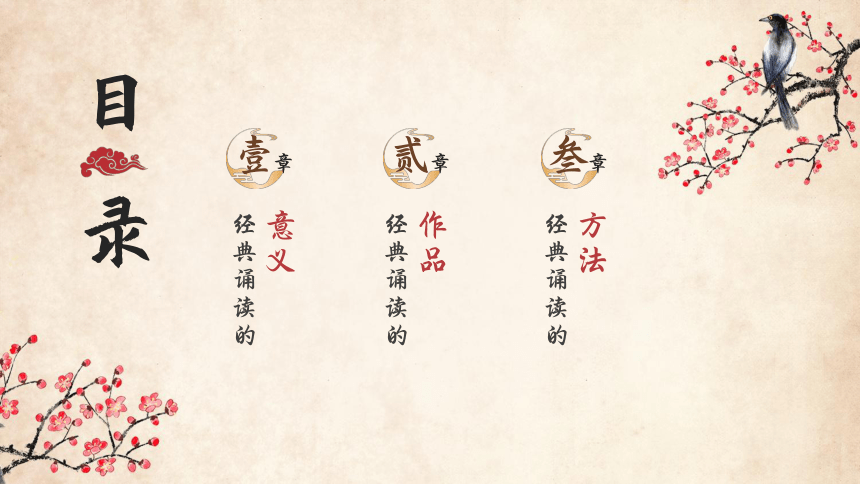 目录
壹章
经典诵读的
意义
贰章
经典诵读的
作品
叁章
经典诵读的
方法